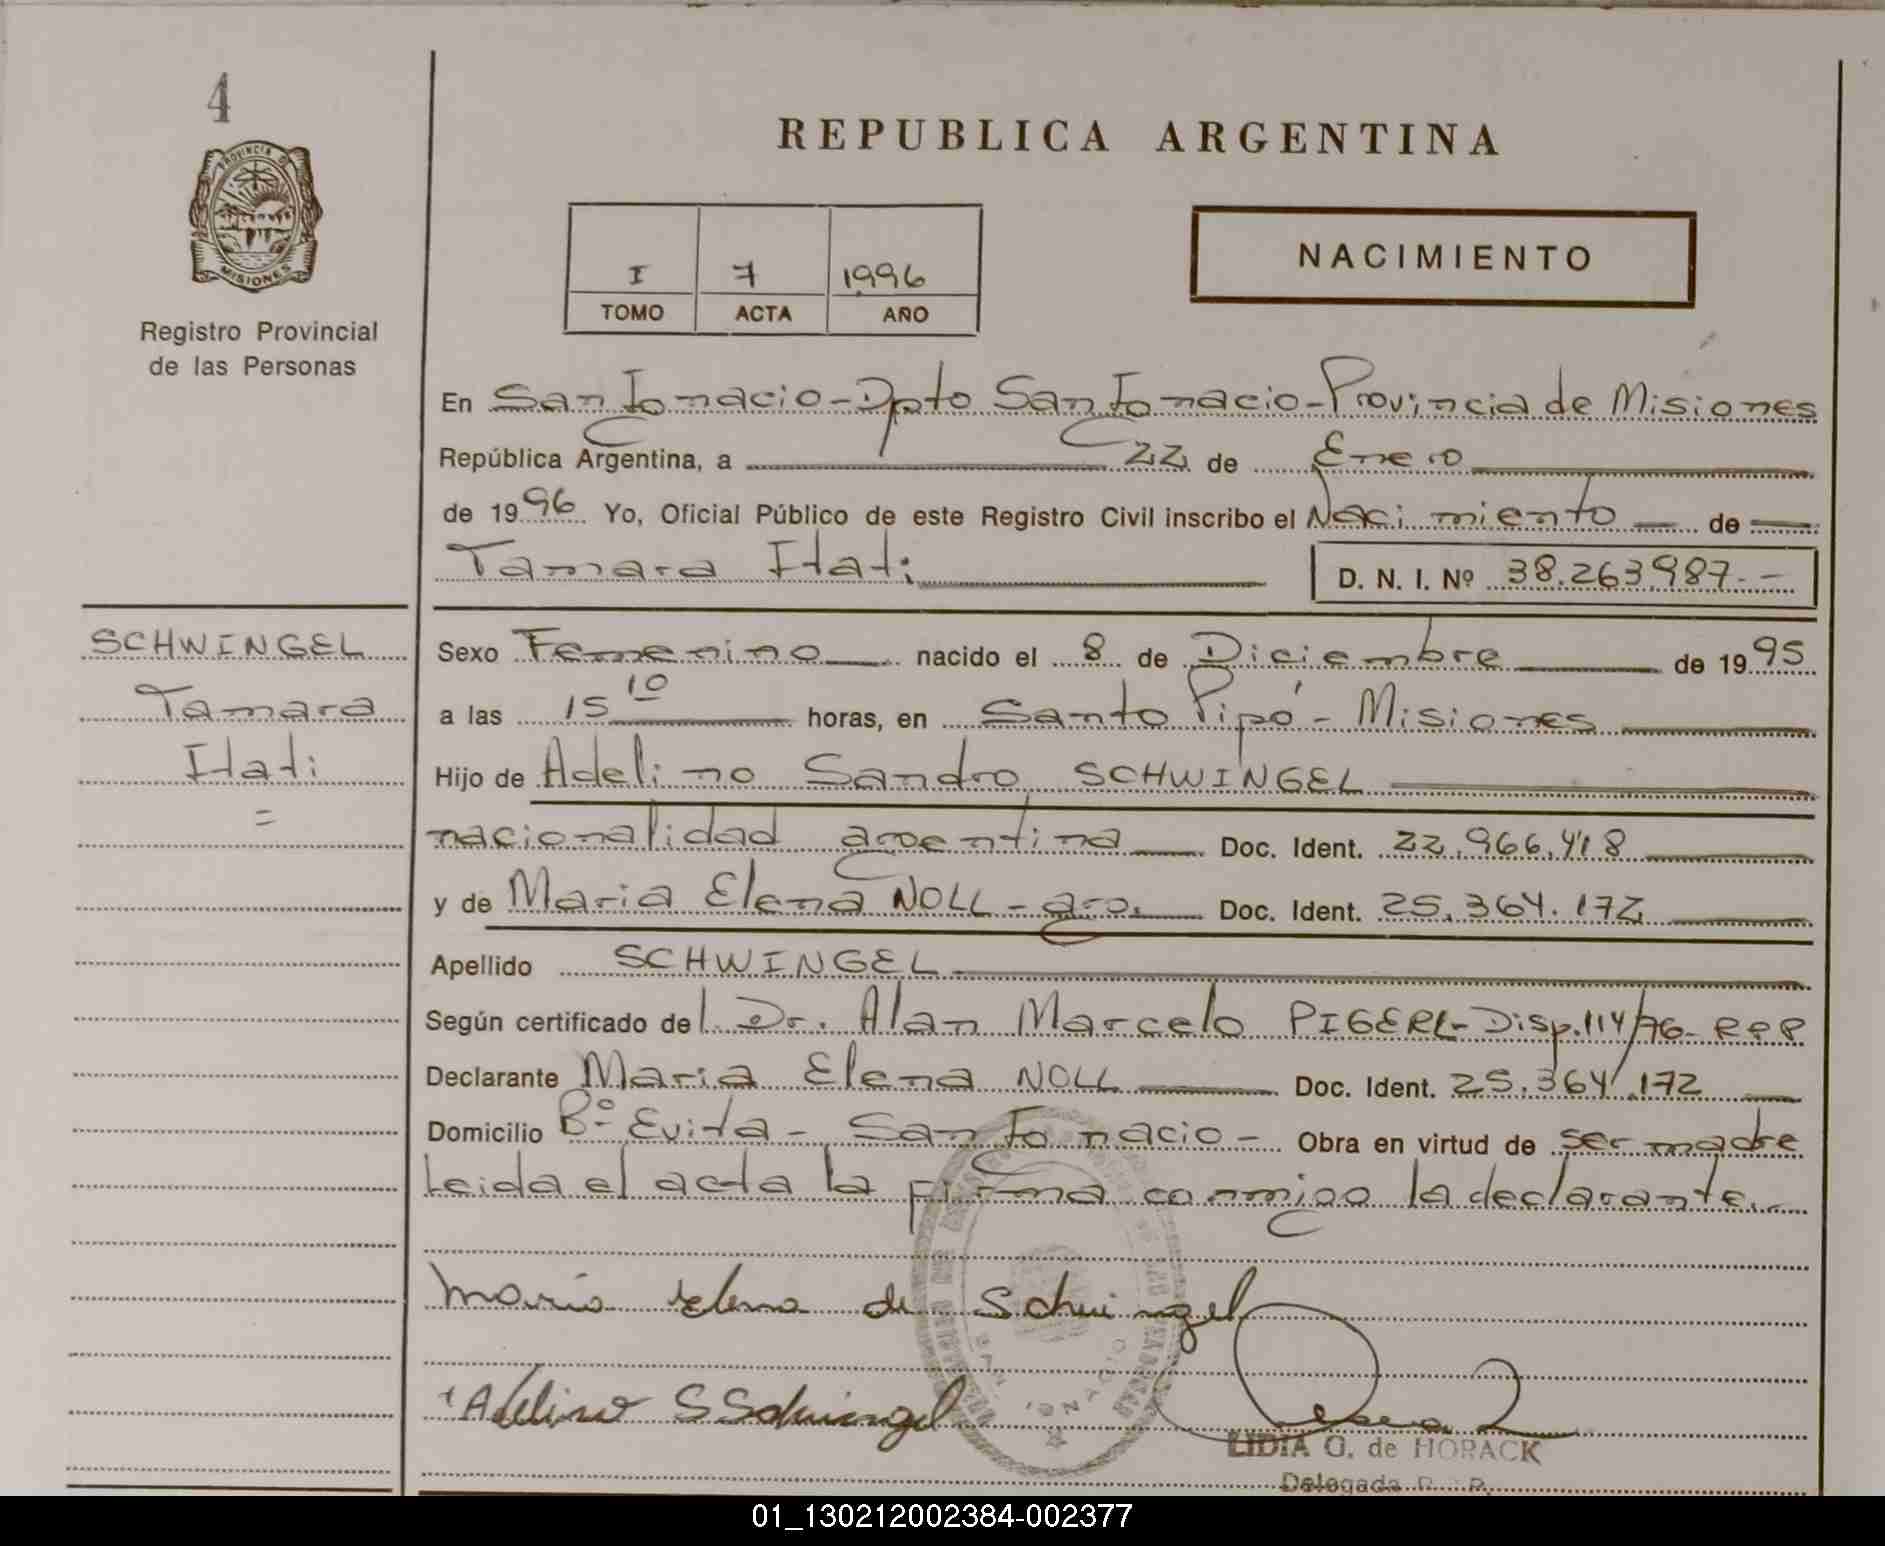 4
PROVINCIA D
MISIONES
Registro Provincial
de las Personas
REPUBLICA ARGENTINA
I 7 1996
TOMO ACTA AÑO
NACIMIENTO
En San Ignacio - Dpto San Ignacio - Provincia de Misiones
República Argentina, a 22 de Enero
de 1996 Yo, Oficial Público de este Registro Civil inscribo el Nacimiento de
Tamara Itati D. N. I. Nº 38.263.987.-
SCHWINGEL
Tamara
Itati
=
Sexo Femenino nacido el 8 de Diciembre de 1995
a las 15 10 horas, en Santo Pipó - Misiones
Hijo de Adelino Sandro SCHWINGEL
nacionalidad argentina Doc. Ident. 22.966.418
y de Maria Elena NOLL - arg. Doc. Ident. 25.364.172
Apellido SCHWINGEL
Según certificado del Dr. Alan Marcelo PIGERL - Disp. 114/76 - RPP
Declarante Maria Elena NOLL Doc. Ident. 25.364.172
Domicilio Bº Evita - San Ignacio - Obra en virtud de ser madre
Leida el acta la firma conmigo la declarante.-
Maria Elena de Schwingel
Adelino S Schwingel
SAN IGNACIO
LIDIA O. de HORACK
Delegada R. P.
01_130212002384-002377